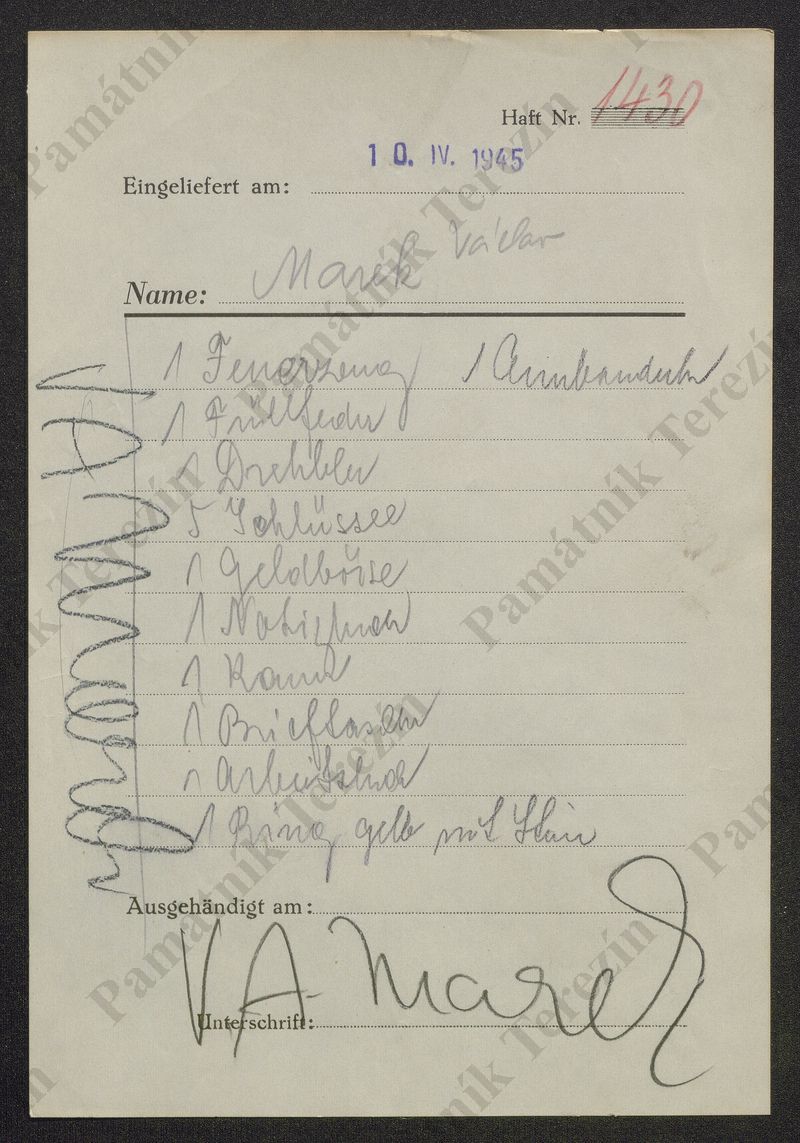 Haft Nr. 1430
10. IV. 1945
Eingeliefert am:
Name: Marek Václav
1 Feuerzeug 1 Armbanduhr
1 Füllfeder
1 Drehblei
5 Schlüssel
1 Geldbörse
1 Notizbuch
1 Kamm
1 Brieftasche
1 Arbeitsbuch
1 Ring gelb mit Stein
Ausgehändigt am:
VA Marek
Unterschrift:
Památník Terezín